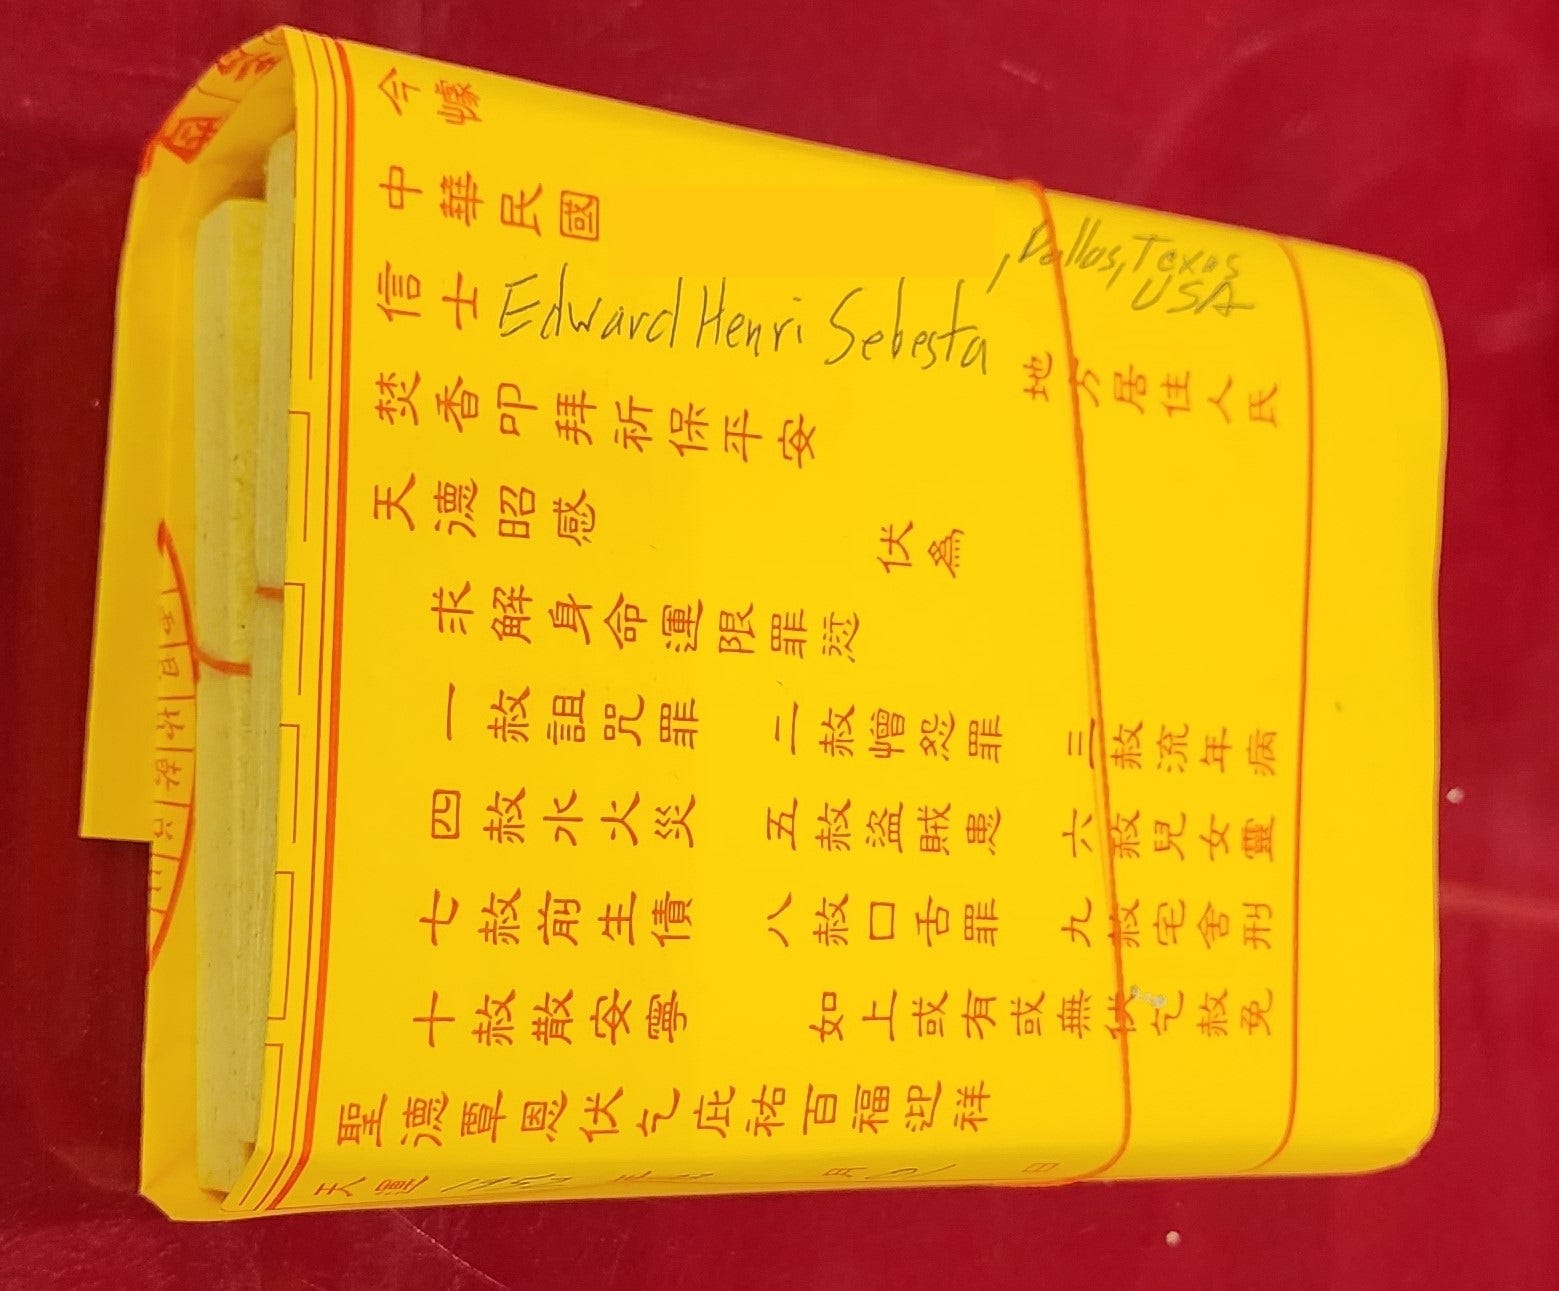 今據
中華民國 , Dallas, Texas USA 地方居住人民
信士 Edward Henri Sebesta
焚香叩拜祈保平安
天德昭感 伏為
求解身命運限罪愆
一赦詛咒罪 二赦憎怨罪 三赦流年病
四赦水火災 五赦盜賊患 六赦兒女靈
七赦前生債 八赦口舌罪 九赦宅舍刑
十赦散安寧 如上或有或無伏乞赦免
聖德覃恩伏乞庇祐百福迎祥
天運 月 日